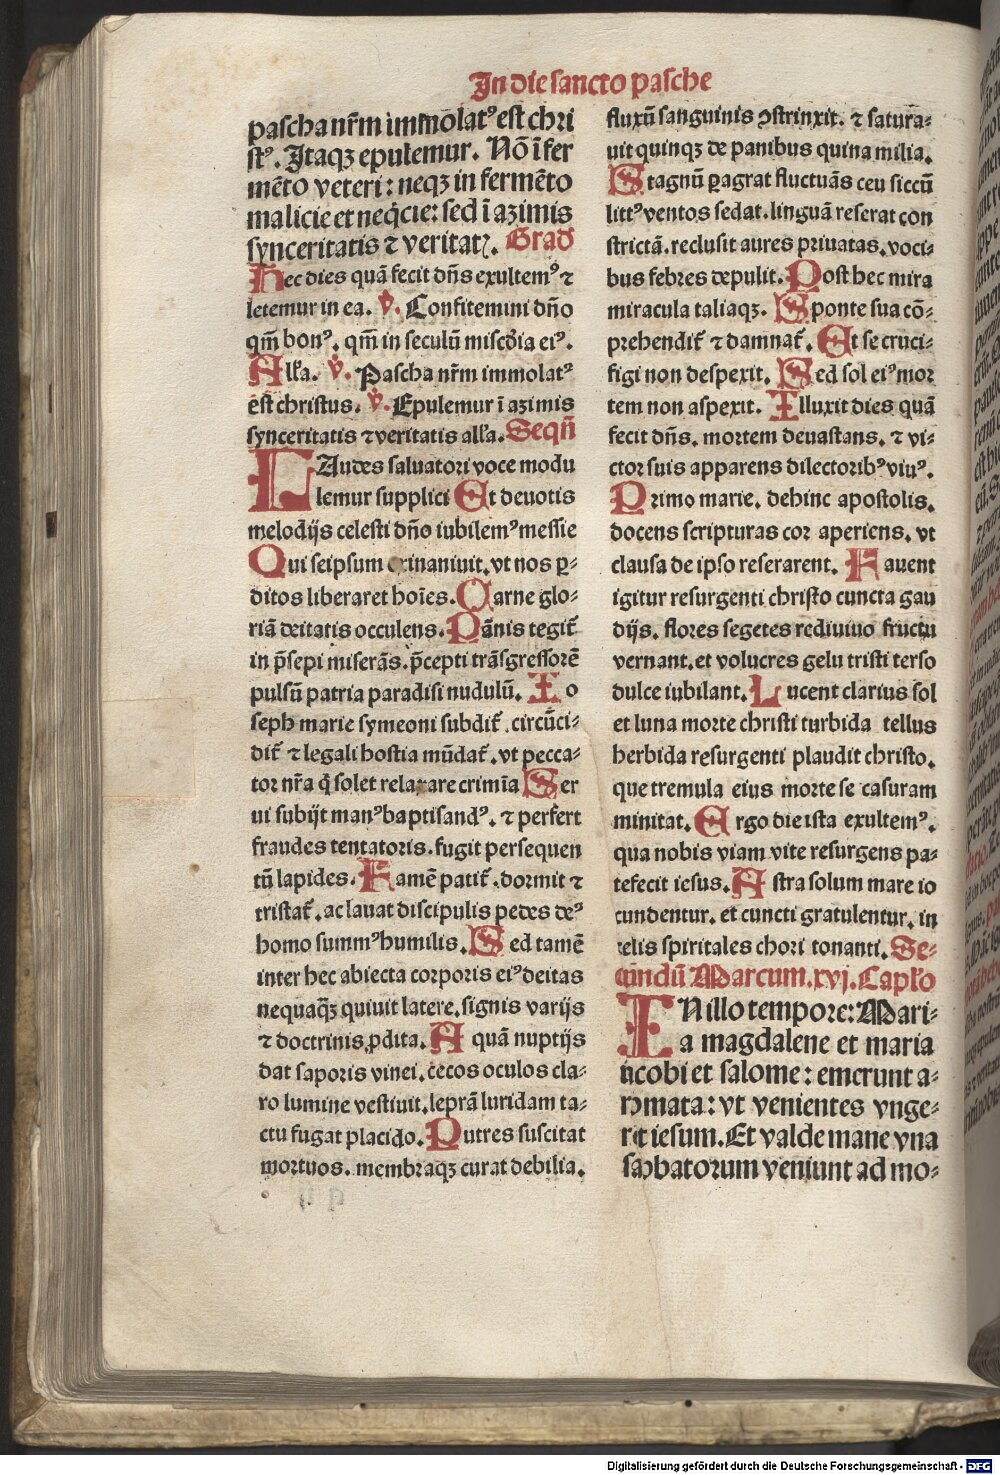 In die sancto pasche
pascha nr̃m immolatꝰ est chri
stꝰ. Itaqꝫ epulemur. Nõ ĩ fer
mẽto veteri: neqꝫ in fermẽto
malicie et neq̃cie: sed ĩ azimis
synceritatis ⁊ veritatꝭ. Grad
Hec dies quã fecit dñs exultemꝰ ⁊
letemur in ea. ꝟ. Confitemini dño
qm̃ bonꝰ. qm̃ in seculũ miscd̃ia eiꝰ.
All̃a. ꝟ. Pascha nr̃m immolatꝰ
est christus. ꝟ. Epulemur ĩ azimis
synceritatis ⁊ veritatis all̃a. Seqñ
LAudes saluatori voce modu
lemur supplici Et deuotis
melodijs celesti dño iubilemꝰ messie
Qui seipsum exinaniuit. vt nos ꝑ⸗
ditos liberaret hoĩes. Carne glo⸗
riã deitatis occulens. Pãnis tegit̃
in p̃sepi miserãs. p̃cepti trãsgressorẽ
pulsũ patria paradisi nudulũ. Io
seph marie symeoni subdit̃. circũci⸗
dit̃ ⁊ legali hostia mũdat̃. vt pecca⸗
tor nr̃a q̃ solet relaxare crimĩa Ser
ui subijt manꝰ baptisandꝰ. ⁊ perfert
fraudes tentatoris. fugit persequen
tũ lapides. Famẽ patit̃. dormit ⁊
tristat̃. ac lauat discipulis pedes deꝰ
homo summꝰ humilis. Sed tamẽ
inter hec abiecta corporis eiꝰ deitas
nequaq̃ꝫ quiuit latere. signis varijs
⁊ doctrinis ꝓdita. A quã nuptijs
dat saporis vinei. cecos oculos cla⸗
ro lumine vestiuit. leprã luridam ta⸗
ctu fugat placido. Putres suscitat
mortuos. membraqꝫ curat debilia.
fluxũ sanguinis ꝯstrinxit. ⁊ satura⸗
uit quinqꝫ de panibus quina milia.
Stagnũ ꝑagrat fluctuãs ceu siccũ
littꝰ ventos sedat. linguã reserat con
strictã. reclusit aures priuatas. voci⸗
bus febres depulit. Post hec mira
miracula taliaqꝫ. Sponte sua cõ⸗
prehendit̃ ⁊ damnat̃. Et se cruci⸗
figi non despexit. Sed sol eiꝰ mor
tem non aspexit. Illuxit dies quã
fecit dñs. mortem deuastans. ⁊ vi⸗
ctor suis apparens dilectoribꝰ viuꝰ.
Primo marie. dehinc apostolis.
docens scripturas cor aperiens. vt
clausa de ipso reserarent. Fauent
igitur resurgenti christo cuncta gau
dijs. flores segetes rediuiuo fructu
vernant. et volucres gelu tristi terso
dulce iubilant. Lucent clarius sol
et luna morte christi turbida tellus
herbida resurgenti plaudit christo.
que tremula eius morte se casuram
minitat. Ergo die ista exultemꝰ.
qua nobis viam vite resurgens pa⸗
tefecit iesus. Astra solum mare io
cundentur. et cuncti gratulentur. in
celis spiritales chori tonanti. Se⸗
cũndũ Marcum. xvj. Capl̃o
IN illo tempore: Mari⸗
a magdalene et maria
iacobi et salome: emerunt a⸗
romata: vt venientes vnge⸗
rẽt iesum. Et valde mane vna
sabbatorum veniunt ad mo⸗
Digitalisierung gefördert durch die Deutsche Forschungsgemeinschaft - DFG